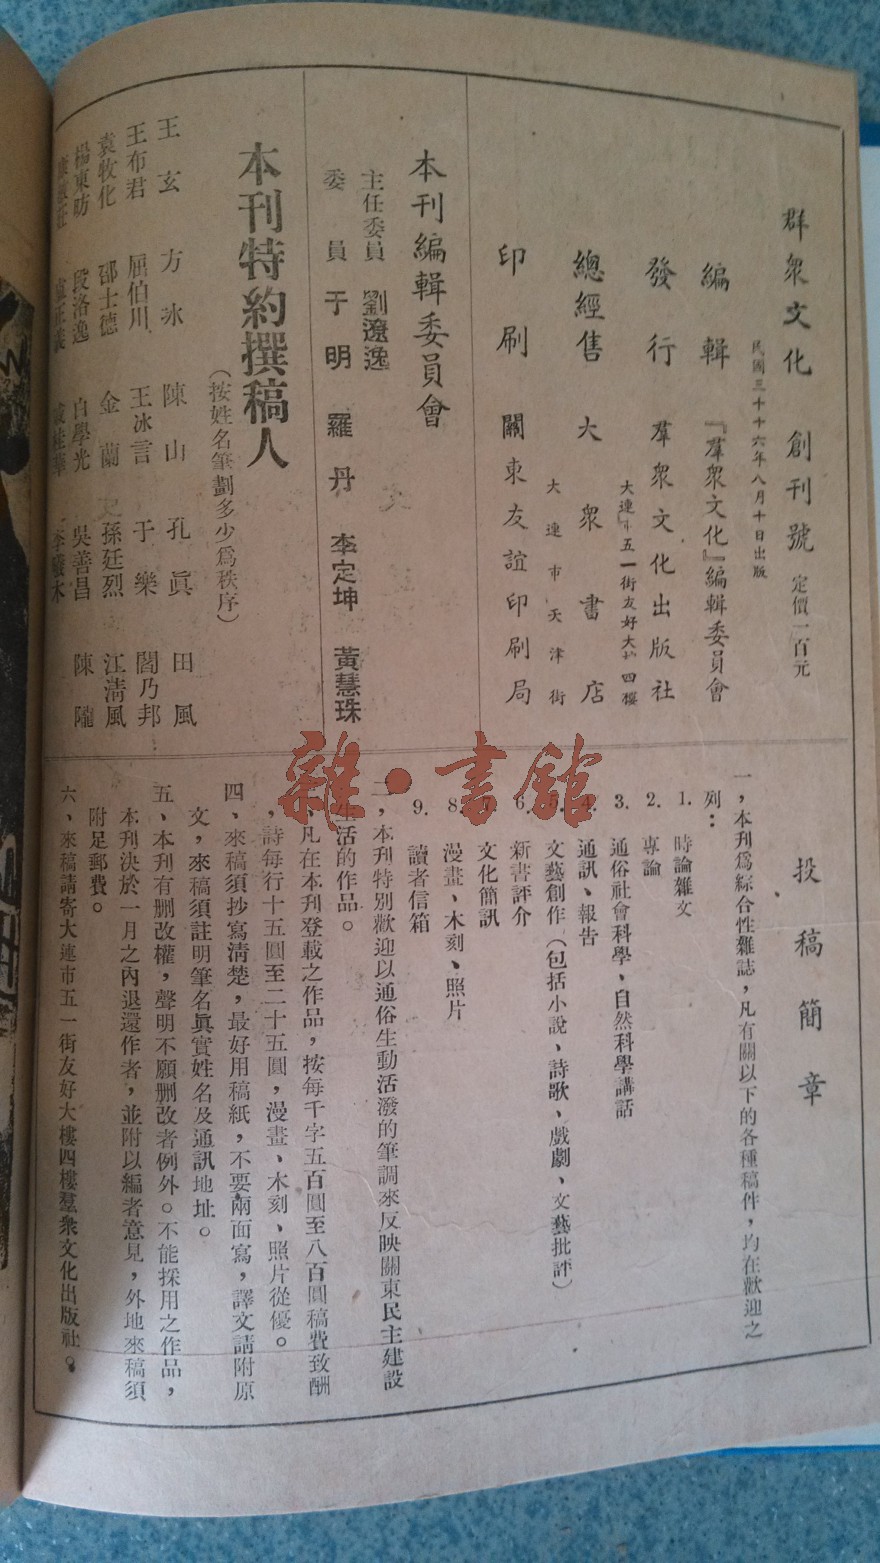 群眾文化 創刊號 定價一百元
民國三十六年八月十日出版
編輯 『羣衆文化』編輯委員會
發行 羣衆文化出版社
大連市五一街友好大樓四樓
總經售 大衆書店
大連市天津街
印刷 關東友誼印刷局
本刊編輯委員會
主任委員 劉遼逸
委員 于明 羅丹 李定坤 黃慧珠
本刊特約撰稿人
(按姓名筆劃多少爲秩序)
王玄 方冰 陳山 孔眞 田風
王布君 屈伯川 王冰言 于樂 閻乃邦
袁牧化 邵士德 金蘭 孫廷烈 江淸風
楊東昉 段洛逸 白學光 吳善昌 陳隴
投稿簡章
一，本刊爲綜合性雜誌，凡有關以下的各種稿件，均在歡迎之
列：
1. 時論雜文
2. 專論
3. 通俗社會科學、自然科學講話
4. 通訊、報告
5. 文藝創作（包括小說、詩歌、戲劇、文藝批評）
6. 新書評介
文化簡訊
8. 漫畫、木刻、照片
9. 讀者信箱
二，本刊特別歡迎以通俗生動活潑的筆調來反映關東民主建設
生活的作品。
、凡在本刊登載之作品，按每千字五百圓至八百圓稿費致酬
，詩每行十五圓至二十五圓，漫畫、木刻、照片從優。
四、來稿須抄寫淸楚，最好用稿紙，不要兩面寫，譯文請附原
文，來稿須註明筆名眞實姓名及通訊地址。
五、本刊有删改權，聲明不願删改者例外。不能採用之作品，
本刊決於一月之內退還作者，並附以編者意見，外地來稿須
附足郵費。
六、來稿請寄大連市五一街友好大樓四樓羣衆文化出版社。
雜·書館